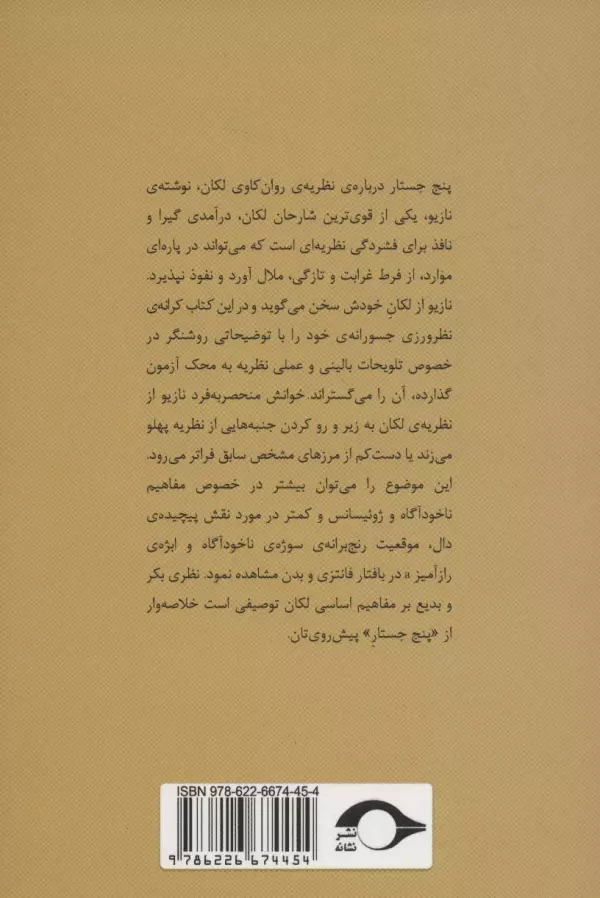 پنج جستار درباره‌ی نظریه‌ی روان‌کاوی لکان، نوشته‌ی
نازیو، یکی از قوی‌ترین شارحان لکان، درآمدی گیرا و
نافذ برای فشردگی نظریه‌ای است که می‌تواند در پاره‌ای
موارد، از فرط غرابت و تازگی، ملال آورد و نفوذ نپذیرد.
نازیو از لکانِ خودش سخن می‌گوید و در این کتاب کرانه‌ی
نظرورزی جسورانه‌ی خود را با توضیحاتی روشنگر در
خصوص تلویحات بالینی و عملی نظریه به محک آزمون
گذارده، آن را می‌گستراند. خوانش منحصربه‌فرد نازیو از
نظریه‌ی لکان به زیر و رو کردن جنبه‌هایی از نظریه پهلو
می‌زند یا دست‌کم از مرزهای مشخص سابق فراتر می‌رود.
این موضوع را می‌توان بیشتر در خصوص مفاهیم
ناخودآگاه و ژوئیسانس و کمتر در مورد نقش پیچیده‌ی
دال، موقعیت رنج‌برانه‌ی سوژه‌ی ناخودآگاه و ابژه‌ی
رازآمیز a در بافتار فانتزی و بدن مشاهده نمود. نظری بکر
و بدیع بر مفاهیم اساسی لکان توصیفی است خلاصه‌وار
از «پنج جستارِ» پیش‌روی‌تان.
ISBN 978-622-6674-45-4
9 786226 674454
نشر
نشانه